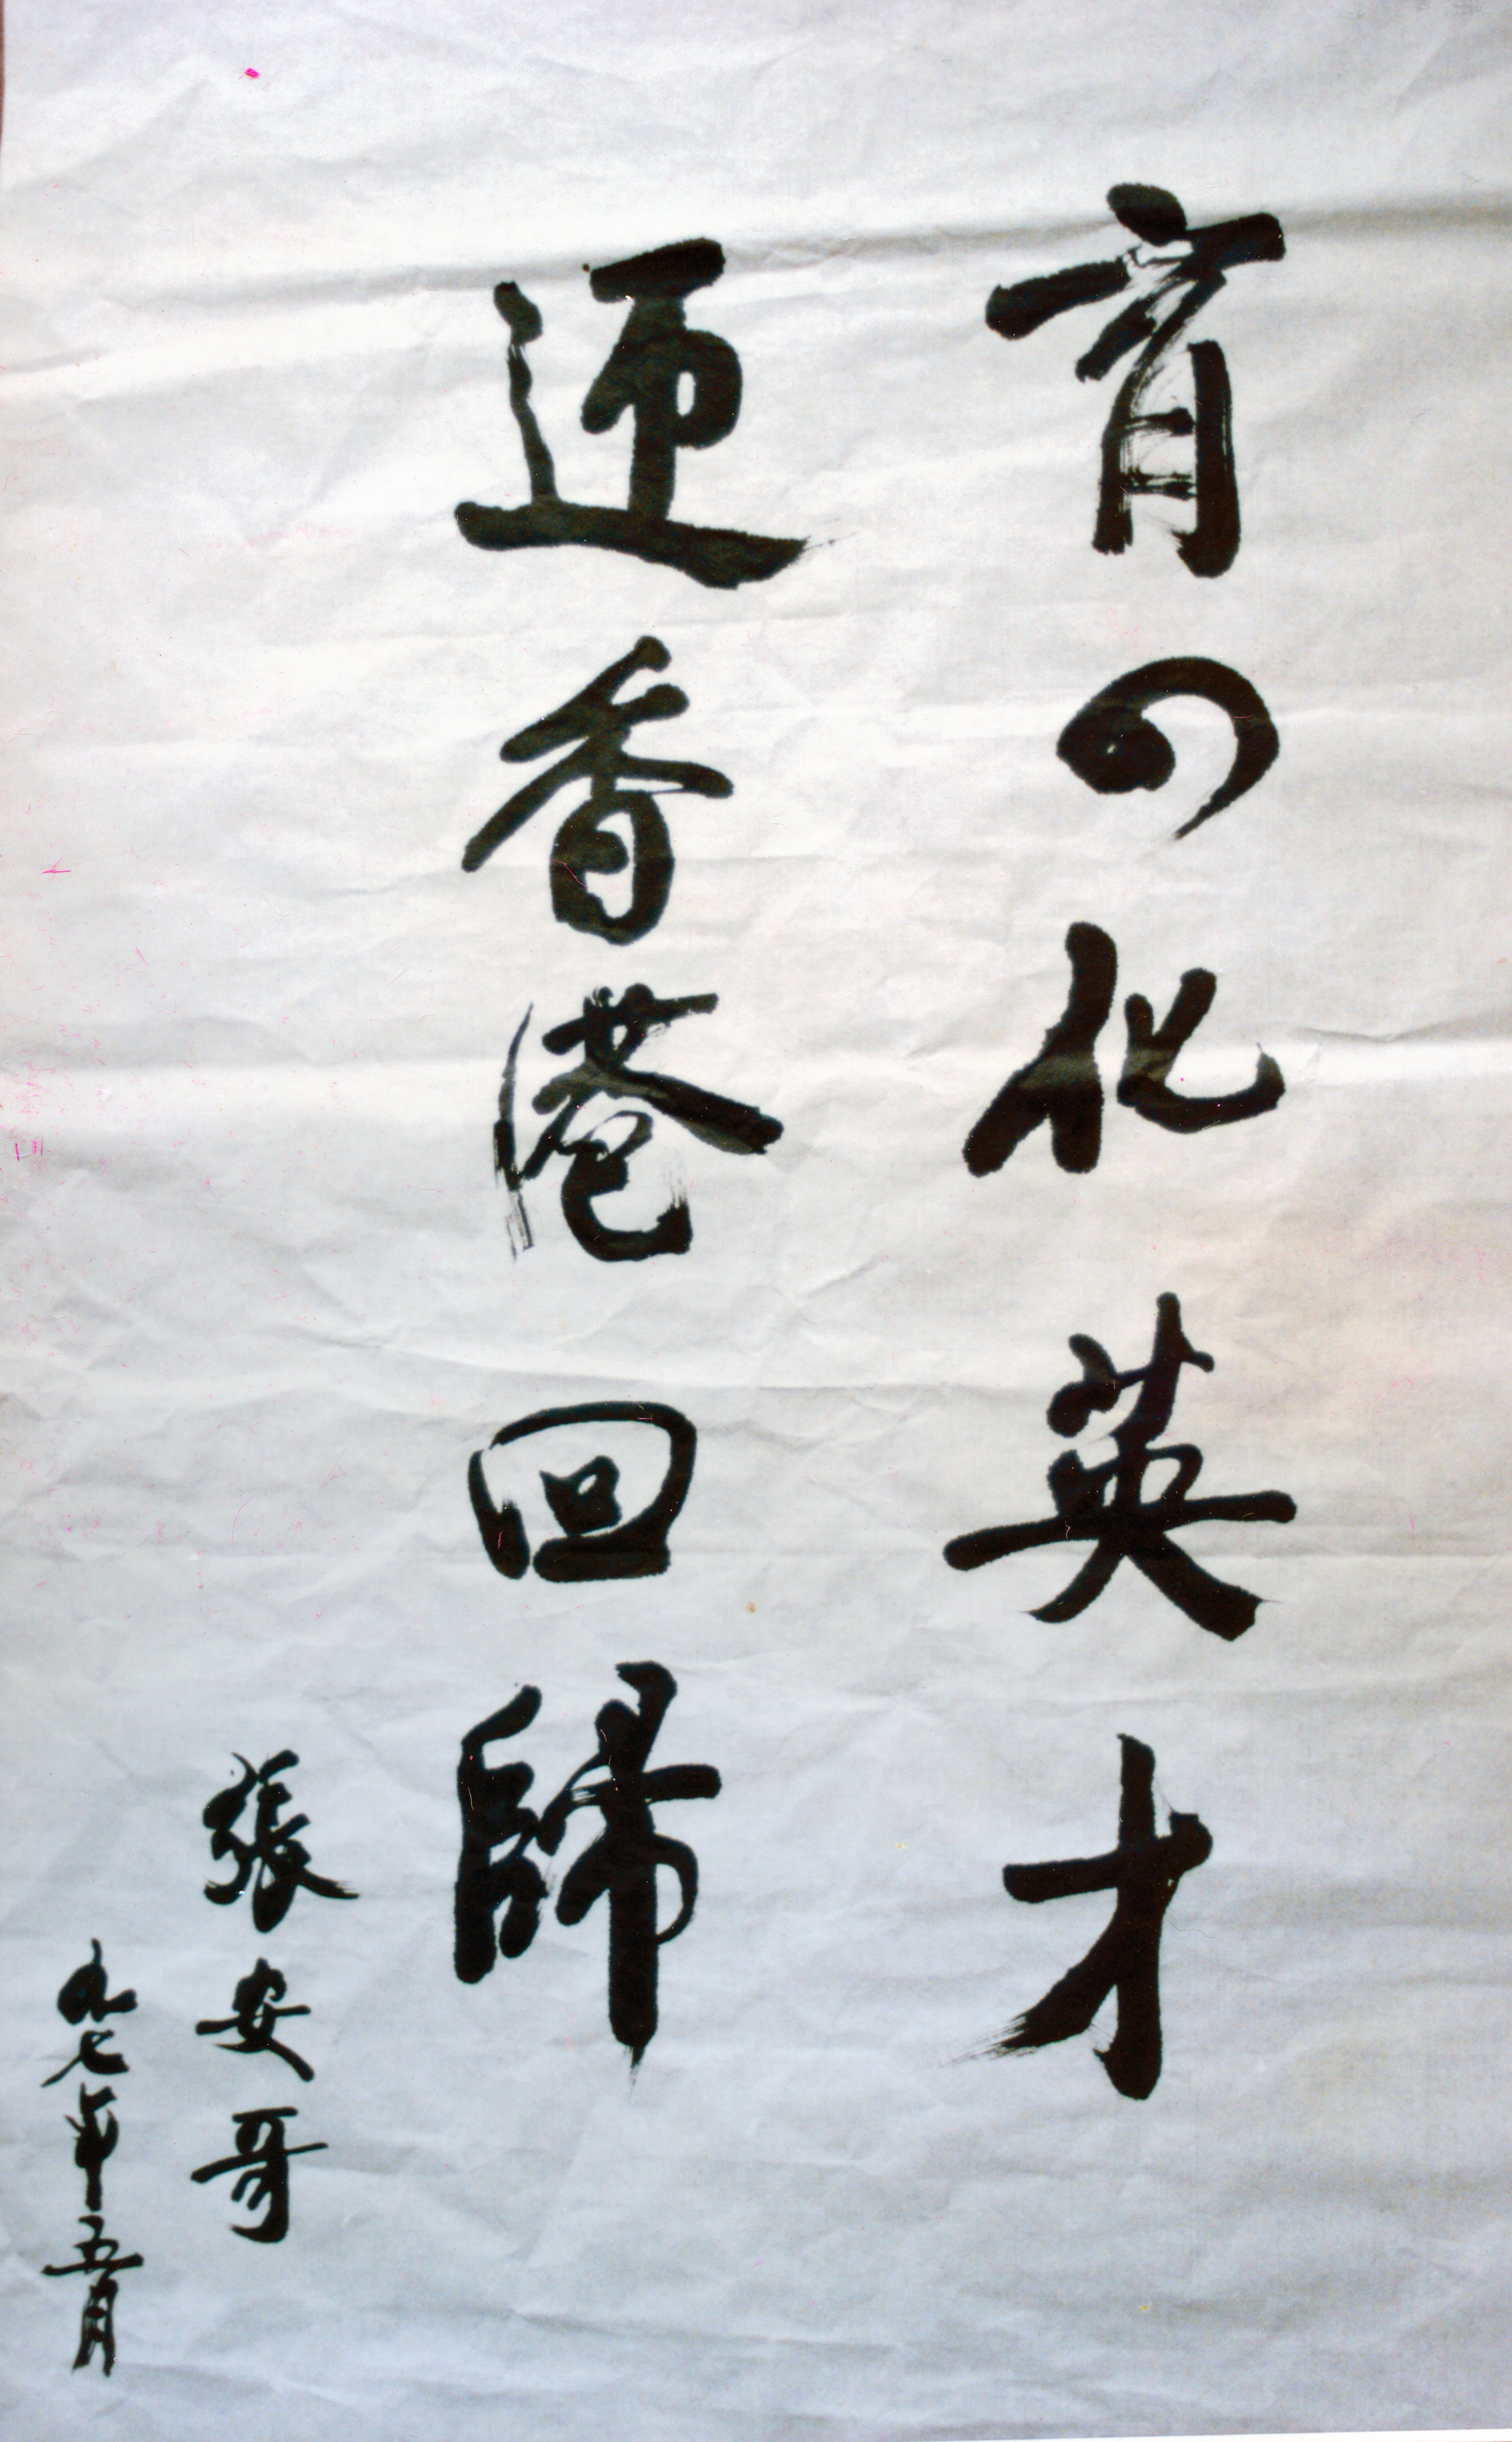 育四化英才
迎香港回歸
張安哥
九七年五月